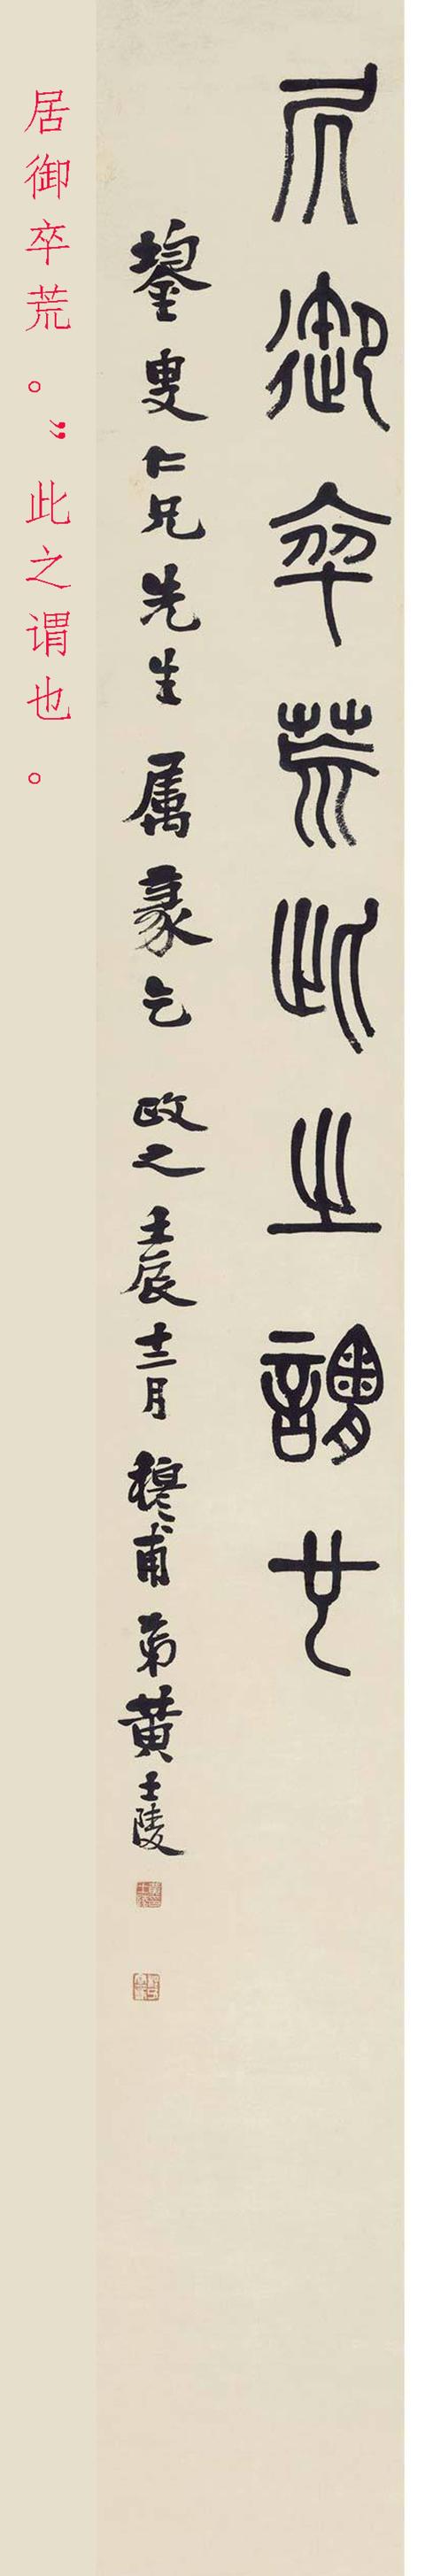 凥御卒荒此之謂也
鋆叟仁兄先生属篆乞政之壬辰十二月穆甫弟黃士陵
居御卒荒。”此之谓也。